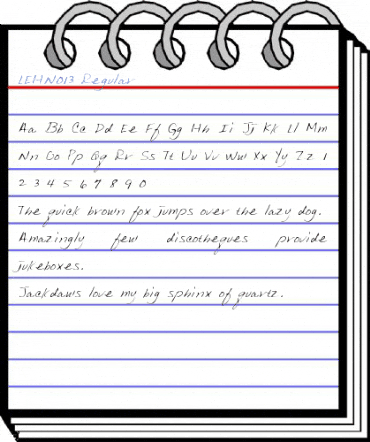 LEHN013 Regular
Aa Bb Cc Dd Ee Ff Gg Hh Ii Jj Kk Ll Mm
Nn Oo Pp Qq Rr Ss Tt Uu Vv Ww Xx Yy Zz 1
2 3 4 5 6 7 8 9 0
The quick brown fox jumps over the lazy dog.
Amazingly few discotheques provide
jukeboxes.
Jackdaws love my big sphinx of quartz.